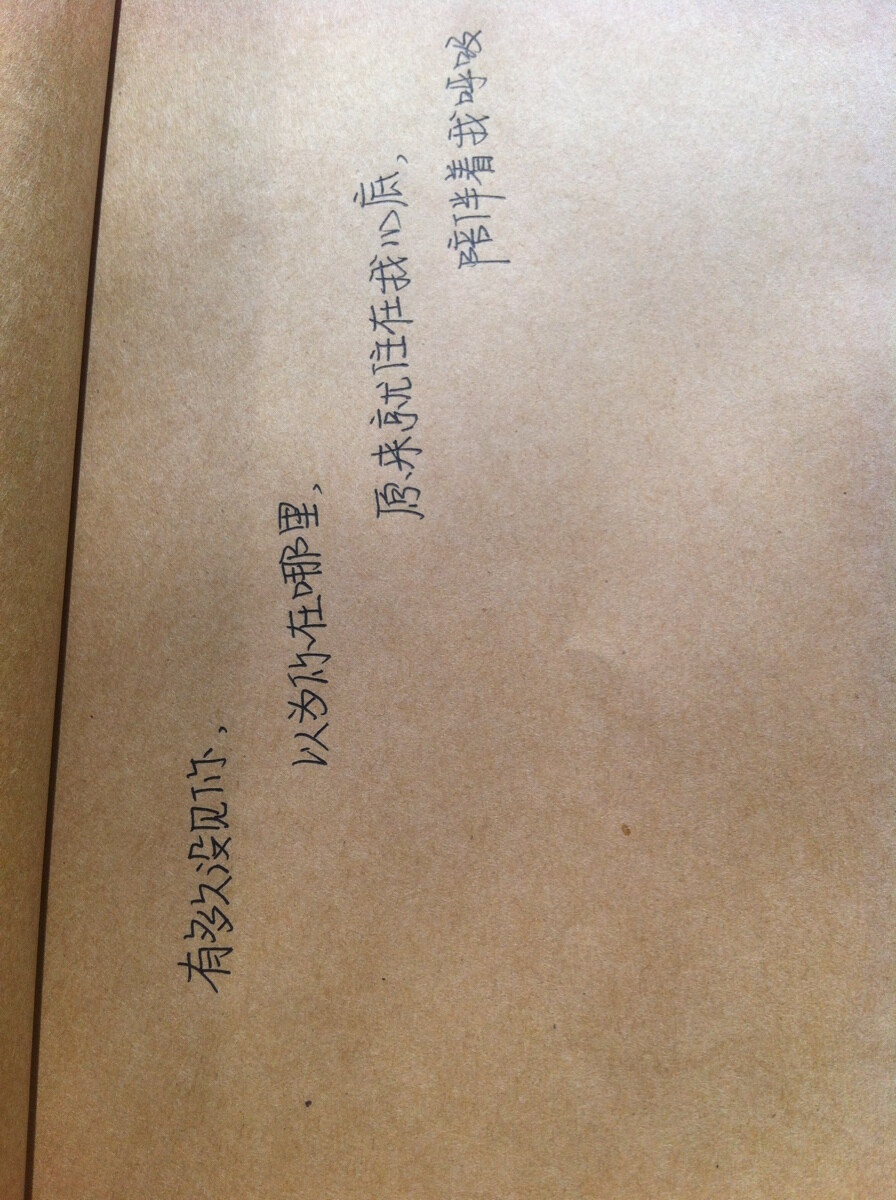 有多久没见你，
以为你在哪里，
原来就住在我心底，
陪伴着我呼吸